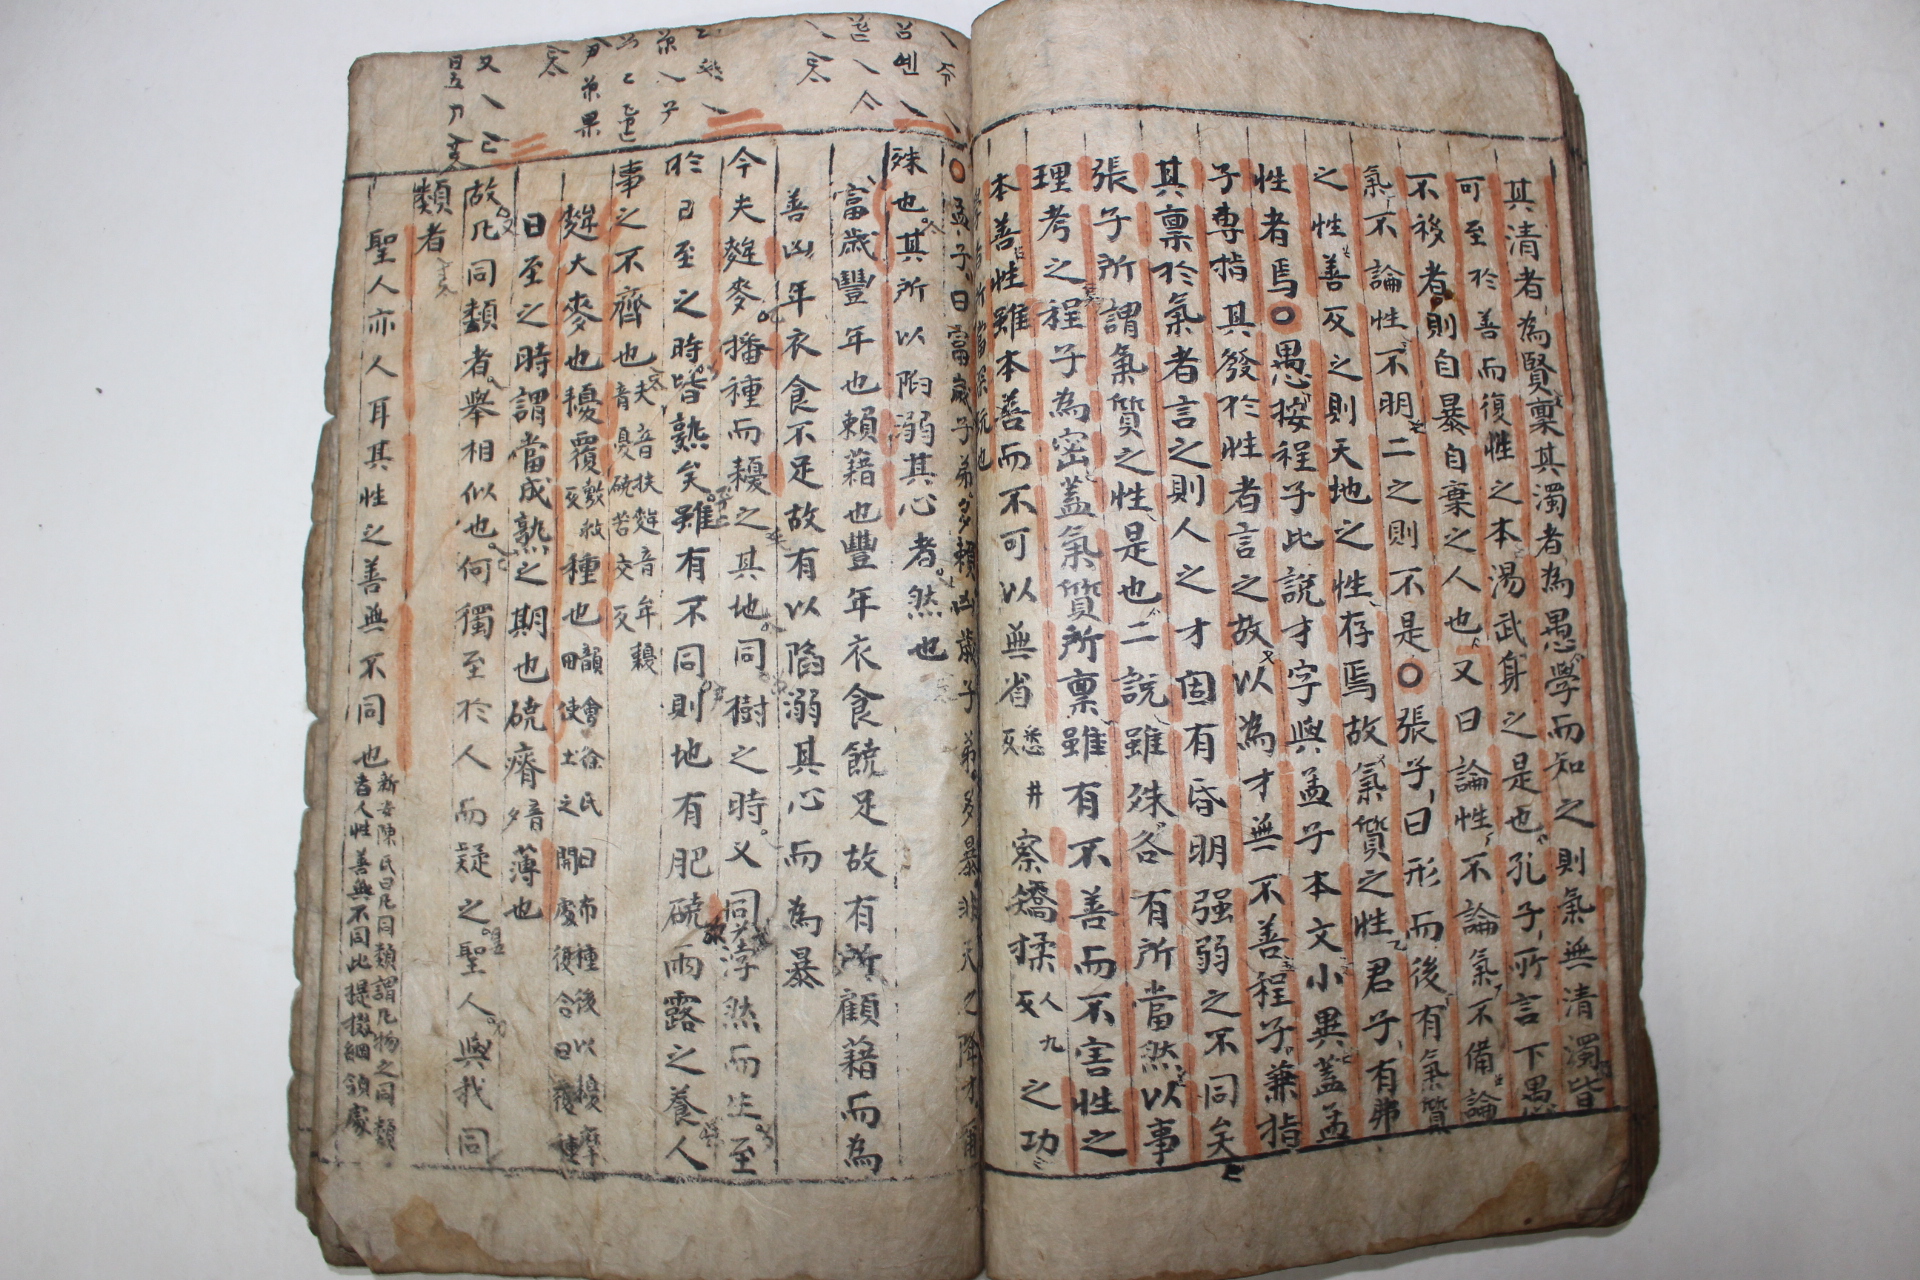 其清者為賢稟其濁者為愚學而知之則氣無清濁皆
可至於善而復性之本湯武身之是也孔子所言下愚
不移者則自暴自棄之人也又曰論性不論氣不備論
氣不論性不明二之則不是○張子曰形而後有氣質
之性善反之則天地之性存焉故氣質之性君子有弗
性者焉○愚按程子此說才字與孟子本文小異蓋孟
子專指其發於性者言之故以為才無不善程子兼指
其稟於氣者言之則人之才固有昏明强弱之不同矣
張子所謂氣質之性是也二說雖殊各有所當然以事
理考之程子為密蓋氣質所稟雖有不善而不害性之
本善性雖本善而不可以無省悉井反察矯揉人九反之功
○孟子曰富歲子弟多賴凶歲子弟多暴非天之降才爾
殊也其所以陷溺其心者然也
富歲豐年也賴藉也豐年衣食饒足故有所顧藉而為
善凶年衣食不足故有以陷溺其心而為暴
今夫麰麥播種而耰之其地同樹之時又同浡然而生至
於日至之時皆熟矣雖有不同則地有肥磽雨露之養人
事之不齊也夫音扶麰音牟耰音憂磽苦交反
麰大麥也耰覆敷救反種也韻會徐氏曰布種後以耰摩田使土之開處復合曰覆種
日至之時謂當成熟之期也磽瘠夕音薄也
故凡同類者舉相似也何獨至於人而疑之聖人與我同
類者
聖人亦人耳其性之善無不同也新安陳氏曰凡同類謂凡物之同類者人性善無不同此提掇綱領處